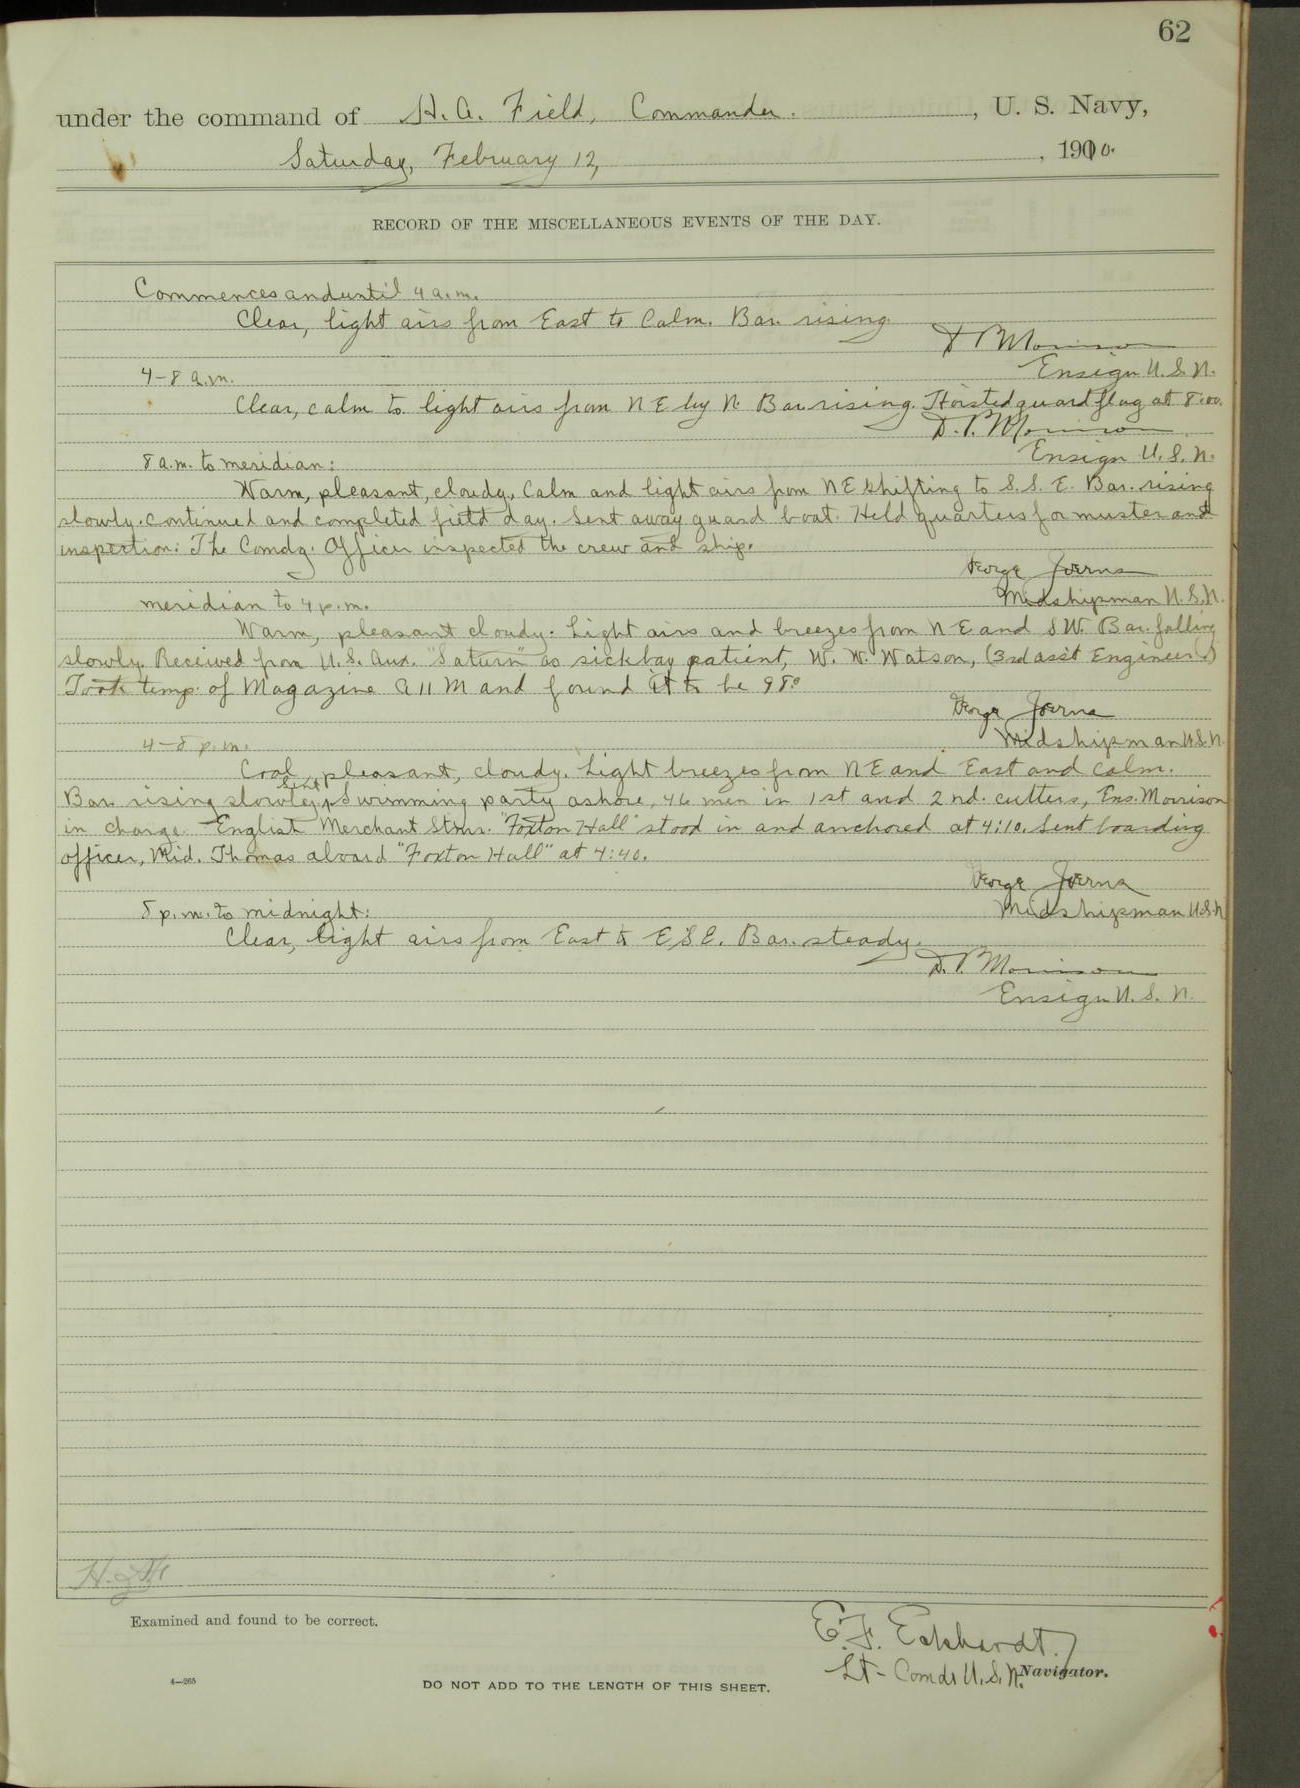 62
under the command of H. A. Field, Commander. , U. S. Navy,
Saturday, February 12, , 1910.
RECORD OF THE MISCELLANEOUS EVENTS OF THE DAY.
Commences and until 4 a.m.
Clear, light airs from East to Calm. Bar. rising.
D P Morrison
Ensign U.S.N.
4-8 a.m.
Clear, calm to light airs from NE by N. Bar. rising. Hoisted guard flag at 8:00.
D. P. Morrison
Ensign U.S.N.
8 a.m. to meridian:
Warm, pleasant, cloudy. Calm and light airs from NE shifting to S.S.E. Bar. rising
slowly. Continued and completed field day. Sent away guard boat. Held quarters for muster and
inspection. The Comdg. Officer inspected the crew and ship.
George Joerns
Midshipman U.S.N.
meridian to 4 p.m.
Warm, pleasant cloudy. Light airs and breezes from NE and SW. Bar. falling
slowly. Received from U.S. Aux. "Saturn" as sickbay patient, W. W. Watson, (3rd ass't Engineer)
Took temp. of Magazine A 11 M and found it to be 98°
George Joerns
Midshipman U.S.N.
4-8 p.m.
Cool, pleasant, cloudy. Light breezes from NE and East and calm.
Bar. rising slowley. Sent Swimming party ashore, 46 men in 1st and 2nd. cutters, Ens. Morrison
in charge. English Merchant Stmr. "Foxton Hall" stood in and anchored at 4:10. Sent boarding
officer, Mid. Thomas aboard "Foxton Hall" at 4:40.
George Joerns
Midshipman U.S.N.
8 p.m. to midnight:
Clear, light airs from East to ESE. Bar. steady.
D. P. Morrison
Ensign U.S.N.
Examined and found to be correct.
E. F. Eckhardt.
Lt-Comdr U.S.N. Navigator.
4—265
DO NOT ADD TO THE LENGTH OF THIS SHEET.